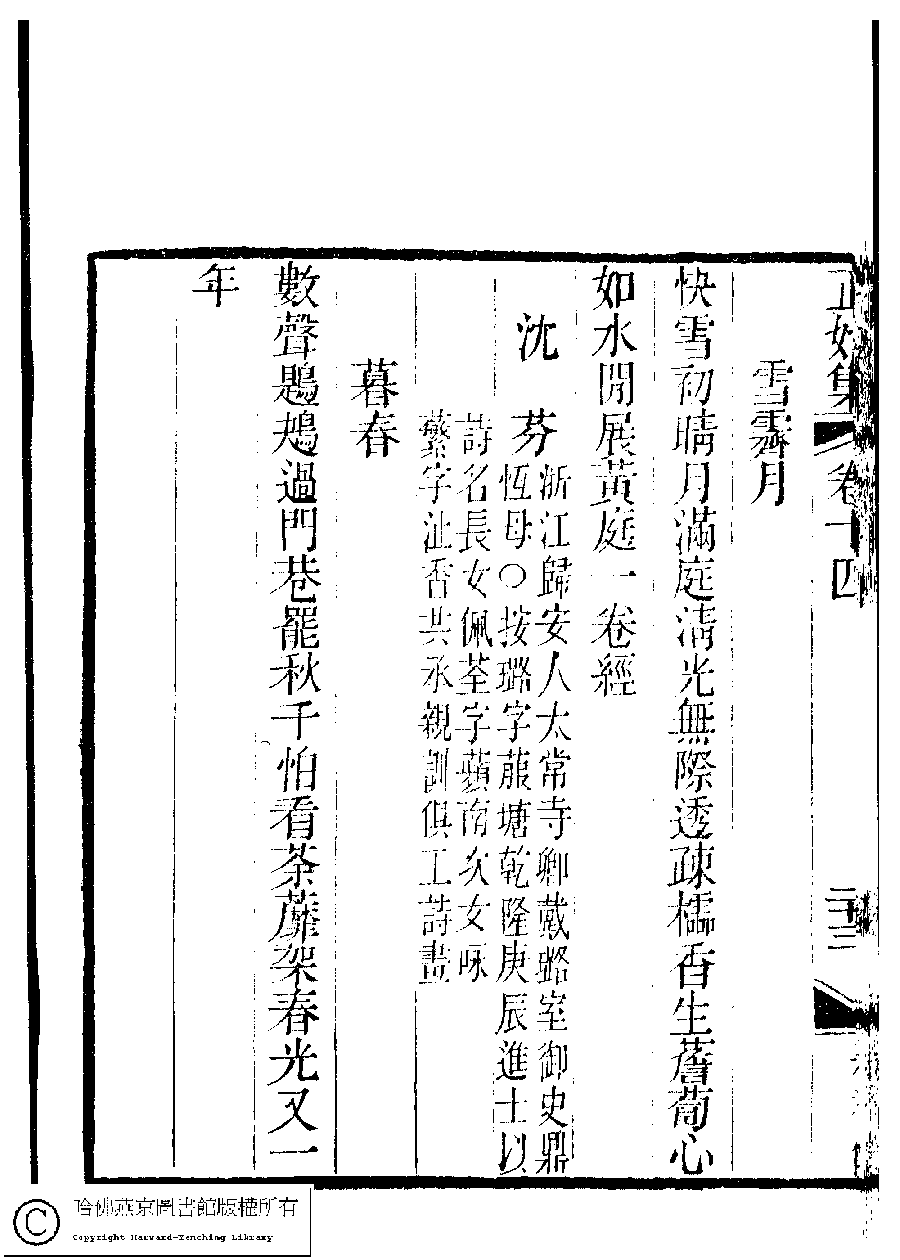 正始集 卷十四 二十三
雪霽月
快雪初晴月滿庭淸光無際透疎櫺香生薝蔔心
如水閒展黃庭一卷經
沈 芬 浙江歸安人太常寺卿戴璐室御史鼎
恆母○按璐字菔塘乾隆庚辰進士以
詩名長女佩荃字蘋南次女咏
蘩字沚香共承親訓俱工詩畫
暮春
數聲鶗鴂過門巷罷秋千怕看荼蘼架春光又一
年
哈佛燕京圖書館版權所有
Copyright Harvard-Yenching Library